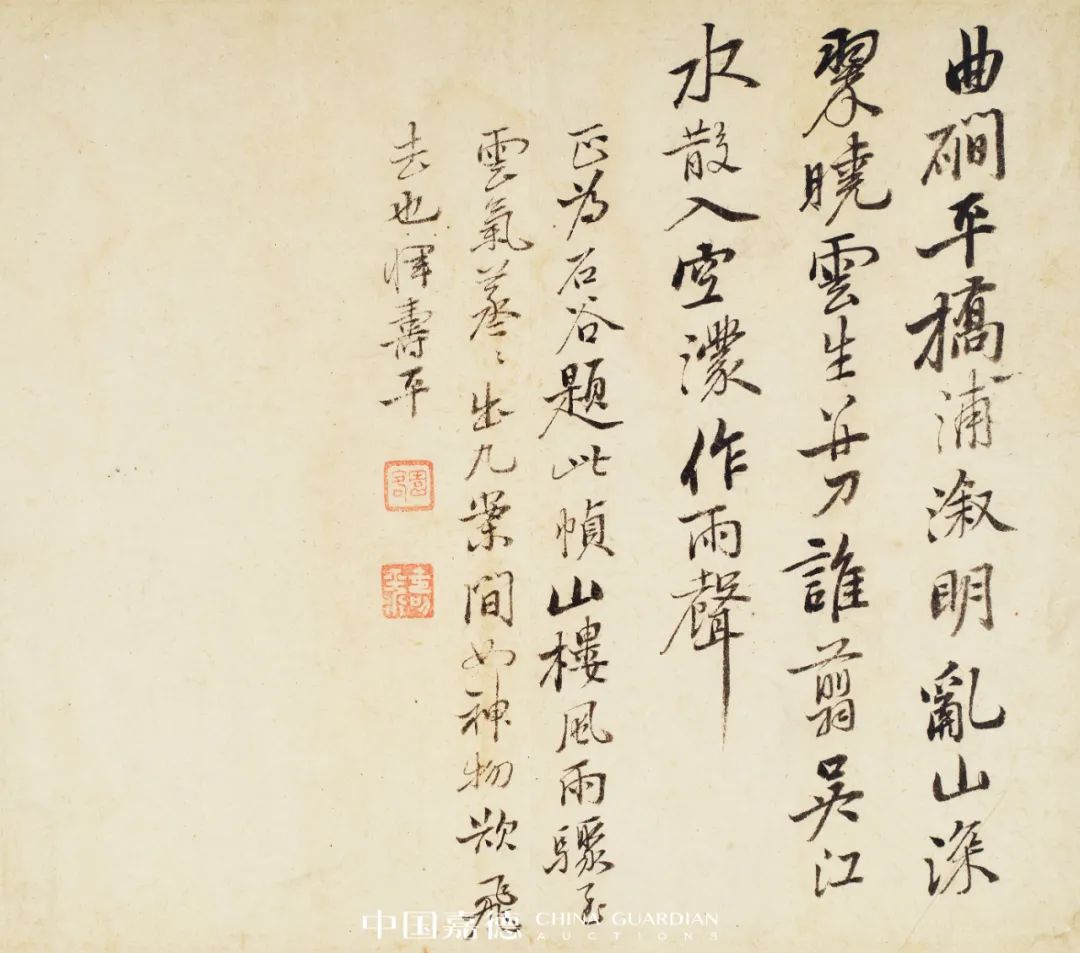 曲磵平橋浦漵明亂山深
翠曉雲生并刀誰翦吴江
水散入空濛作雨聲
正為石谷題此幀山樓風雨驟至
雲氣蒸〻出几案間如神物欲飛
去也惲壽平
壽平
中国嘉德 CHINA GUARDIAN
AUCTIONS